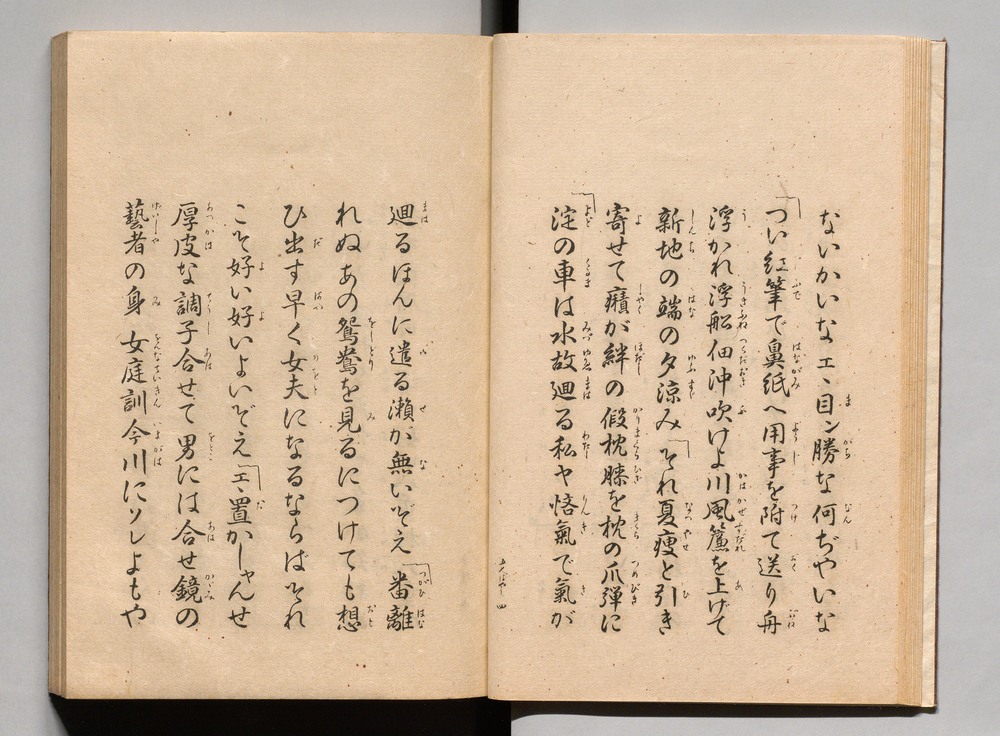 ないかいなエヽ目ン勝な何ぢやいな
「つい紅筆で鼻紙へ用事を附て送り舟
浮かれ浮船佃沖吹けよ川風簾を上げて
新地の端の夕涼み「それ夏痩と引き
寄せて癪が絆の假枕膝を枕の爪弾に
「淀の車は水故廻る私ヤ悋氣で氣が
廻るほんに遣る瀬が無いぞえ「番離
れぬあの鴛鴦を見るにつけても想
ひ出す早く女夫になるならばそれ
こそ好い好いよいぞえ「エヽ置かしやんせ
厚皮な調子合せて男には合せ鏡の
藝者の身女庭訓今川にソレよもや